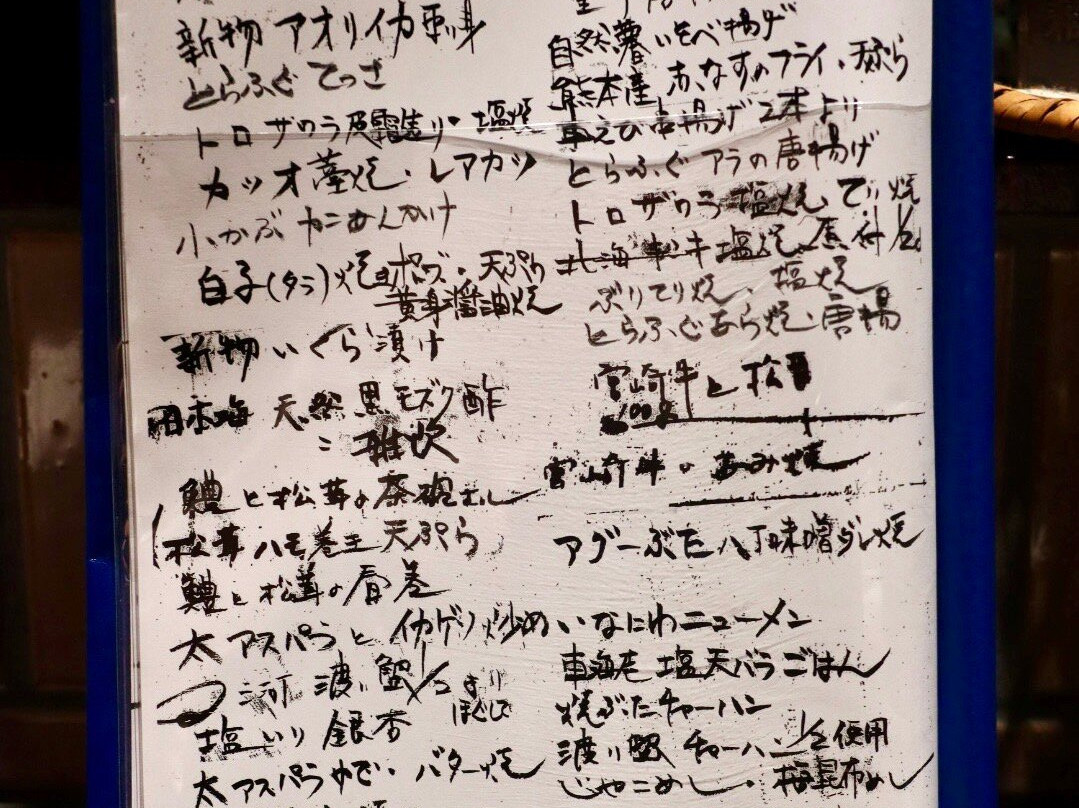 新物 アオリイカ刺身
とらふぐ てっさ
トロザワラ 塩焼
カツオ藁焼・レアカツ
小かぶ カニあんかけ
白子(タラ)焼 ポン・天ぷら
黄身醤油焼
新物 いくら漬け
日本海 天然 黒モズク酢
〃 雑炊
鱧と松茸の茶碗むし
松茸ハモ巻き 天ぷら
鱧と松茸の
太アスパラとイカゲソ炒め
三河 渡り蟹 1/2より
ほぐして
塩いり銀杏
太アスパラゆで・バター焼
自然薯いそべ揚げ
熊本産 赤なすのフライ・天ぷら
車えび串揚げ 2本より
とらふぐ アラの唐揚げ
トロザワラ 塩焼 てり焼
北海 塩焼
ぶりてり焼、塩焼
とらふぐあら焼・唐揚
宮崎牛と松茸
100g
宮崎牛の あみ焼
アグーぶた 八丁味噌ダレ焼
いなにわニューメン
車海老 塩天バラごはん
焼ぶたチャーハン
渡り蟹 チャーハン 1/2使用
じゃこめし・梅昆布めし